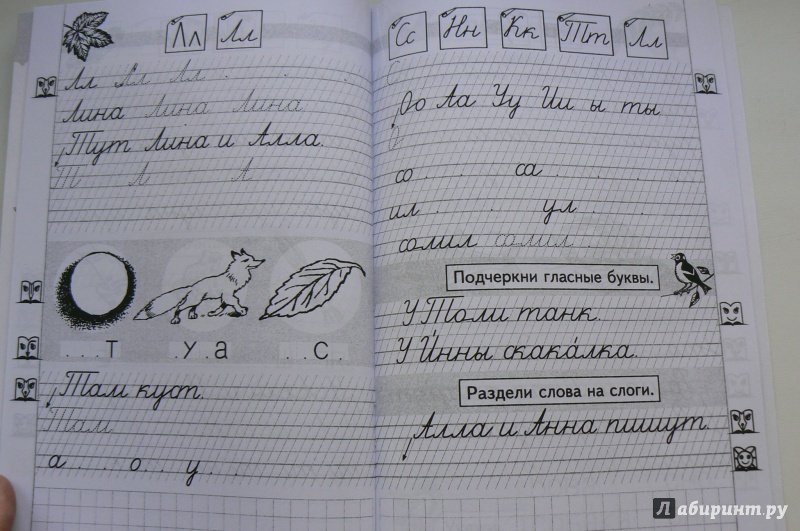 Лл Лл
Лл Лл Лл
Лина Лина Лина
Тут Лина и Алла.
Т Л А
. . . т . у . а . . с .
Там куст.
Там
а . . . о . . у . .
Сс Нн Кк Тт Лл
С
Оо Аа Уу Ии ы ты
О
со са
ил ул
солил солил
Подчеркни гласные буквы.
У Толи танк.
У Инны скака́лка.
Раздели слова на слоги.
Алла и Анна пишут.
Лабиринт.ру